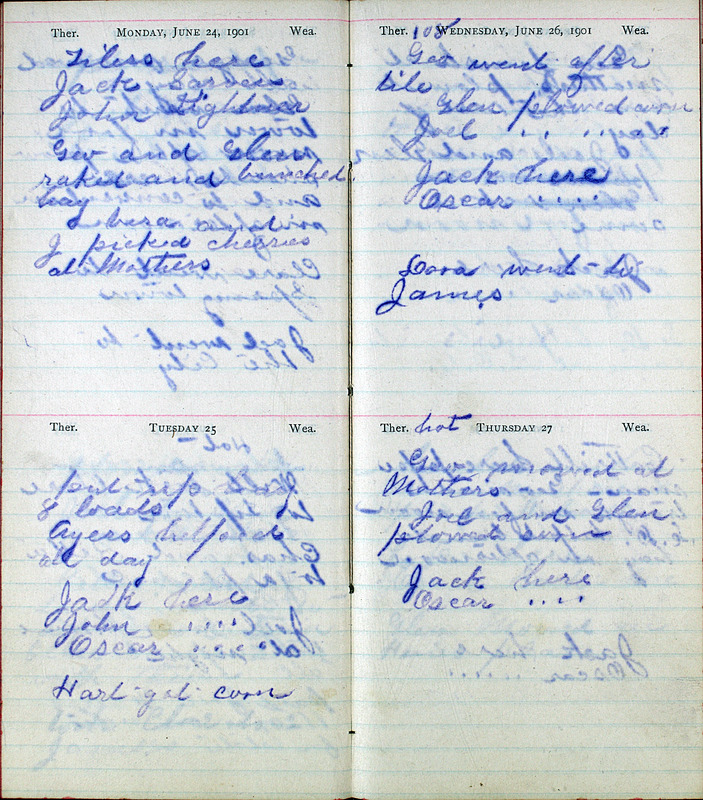 Ther. MONDAY, JUNE 24, 1901 Wea.
Tilers here
Jack
John Lightner
Geo and Glen
raked and bunched
hay
Dora and
I picked cherries
at Mothers
Ther. TUESDAY 25 Wea.
put up hay
8 loads
Ayers helped
all day
Jack here
John " "
Oscar " "
Hart got corn
Ther. 108 WEDNESDAY, JUNE 26, 1901 Wea.
Geo went after
tile
Glen plowed corn
Joel " " day
Jack here
Oscar " "
Dora went to
James
Ther. hot THURSDAY 27 Wea.
Geo mowed at
Mothers
Joel and Glen
plowed corn
Jack here
Oscar " "